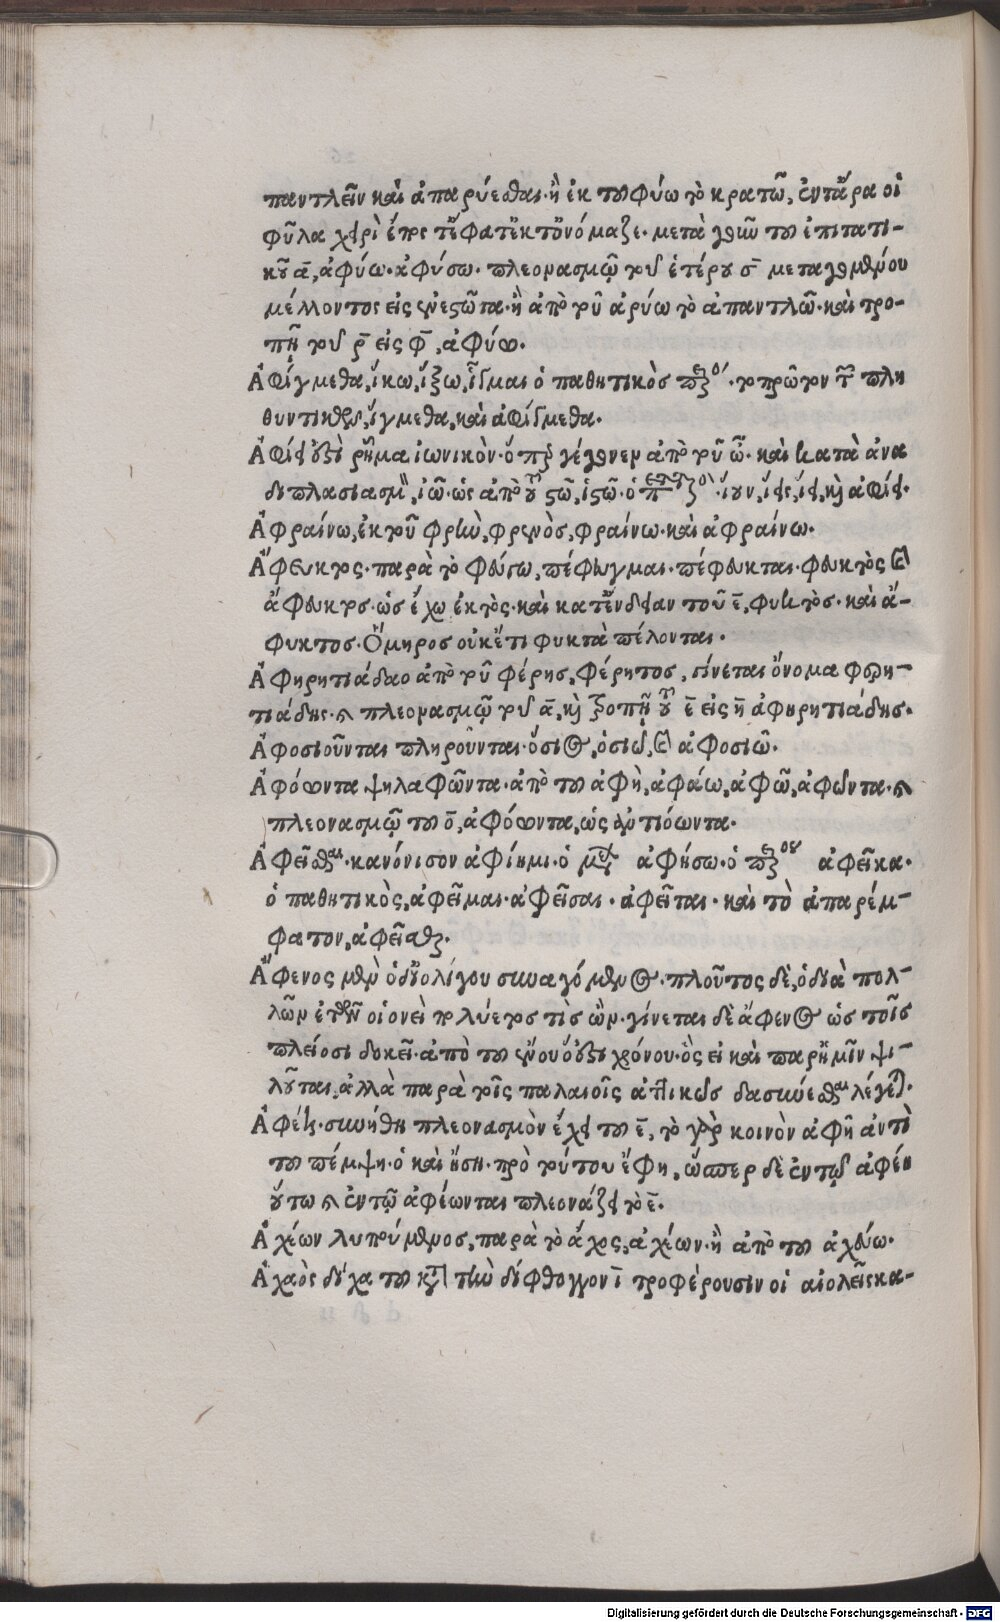 παντλεῖν καὶ ἀπαρύεσθαι. ἢ ἐκ τοῦ φύω τὸ κρατῶ, ἔντ᾽ ἄρα οἱ
φῦλα χειρὶ ἔπος τ᾽ ἔφατ᾽ ἔκτ᾽ ὀνόμαζε. μετὰ γοῦν τοῦ ἐπιτατι-
κοῦ ᾱ, ἀφύω. ἀφύσω. πλεονασμῷ τοῦ ἑτέρου σ̄ μεταγομένου
μέλλοντος εἰς ἐνεστῶτα. ἢ ἀπὸ τοῦ ἀρύω τὸ ἀπαντλῶ. καὶ τρο-
πῇ τοῦ ρ̄ εἰς φ̄, ἀφύω.
Ἀφίγμεθα, ἵκω, ἵξω, ἷγμαι ὁ παθητικὸς . τὸ πρῶτον τῶν πλη
θυντικῶν, ἵγμεθα, καὶ ἀφίγμεθα.
Ἀφίει ἐστὶ ῥῆμα ἰωνικὸν. ὅπερ γέγονεν ἀπὸ τοῦ ὦ. καὶ κατὰ ἀνα
διπλασιασμὸν, ἰῶ. ὡς ἀπὸ τοῦ στῶ, ἱστῶ. ὁ . ἵουν, ἵεις, ἵει, καὶ ἀφίει.
Ἀφραίνω, ἐκ τοῦ φρὴν, φρενὸς, φραίνω. καὶ ἀφραίνω.
Ἄφευκτος. παρὰ τὸ φεύγω, πέφευγμαι. πέφευκται. φευκτὸς καὶ
ἄφευκτος. ὡς ἔχω ἑκτὸς. καὶ κατ᾽ ἔνδειαν τοῦ ε̄, φυκτὸς. καὶ ἄ-
φυκτος. Ὅμηρος οὐκ ἔτι φυκτὰ πέλονται.
Ἀφηρητιάδαο ἀπὸ τοῦ φέρης, φέρητος, γίνεται ὄνομα φερη-
τιάδης. καὶ πλεονασμῷ τοῦ ᾱ, καὶ τροπῇ τοῦ ε̄ εἰς η̄ ἀφηρητιάδης.
Ἀφοσιοῦνται πληροῦνται. ὅσιος, ὁσιῶ, καὶ ἀφοσιῶ.
Ἀφόωντα ψηλαφῶντα. ἀπὸ τοῦ ἀφὴ, ἀφάω, ἀφῶ, ἀφῶντα. καὶ
πλεονασμῷ τοῦ ο̄, ἀφόωντα, ὡς ἀρτιόωντα.
Ἀφεῖσθαι. κανόνισον ἀφίημι. ὁ μέλλων ἀφήσω. ὁ ἀφεῖκα.
ὁ παθητικὸς, ἀφεῖμαι. ἀφεῖσαι. ἀφεῖται. καὶ τὸ ἀπαρέμ-
φατον, ἀφεῖσθαι.
Ἄφενος μὲν ὁ δι᾽ ὀλίγου συναγόμενος. πλοῦτος δὲ, ὁ διὰ πολ-
λῶν ἐτῶν οἱονεὶ πολύετός τις ὤν. γίνεται δὲ ἄφενος ὡς τοῖς
πλείοσι δοκεῖ. ἀπὸ τοῦ ἔνου ὅ ἐστι χρόνου. ὃς εἰ καὶ παρ᾽ ἡμῖν ψι-
λοῦται, ἀλλὰ παρὰ τοῖς παλαιοῖς ἀττικῶς δασύνεσθαι λέγεται.
Ἀφέη. συνήθη πλεονασμὸν ἔχει τοῦ ε̄, τὸ γὰρ κοινὸν ἀφῆ ἀντὶ
τοῦ πέμψη. ὁ καὶ ἥση. πρὸ τούτου ἔφη, ὥσπερ δὲ ἐν τῷ ἀφέη
οὕτω καὶ ἐν τῷ ἀφέωνται πλεονάζει τὸ ε̄.
Ἀχέων λυπούμενος, παρὰ τὸ ἄχος, ἀχέων. ἢ ἀπὸ τοῦ ἀχεύω.
Ἀχαὸς δίχα τοῦ κατὰ τὴν δίφθογγον ῑ προφέρουσιν οἱ αἰολεῖς κα-
Digitalisierung gefördert durch die Deutsche Forschungsgemeinschaft - DFG